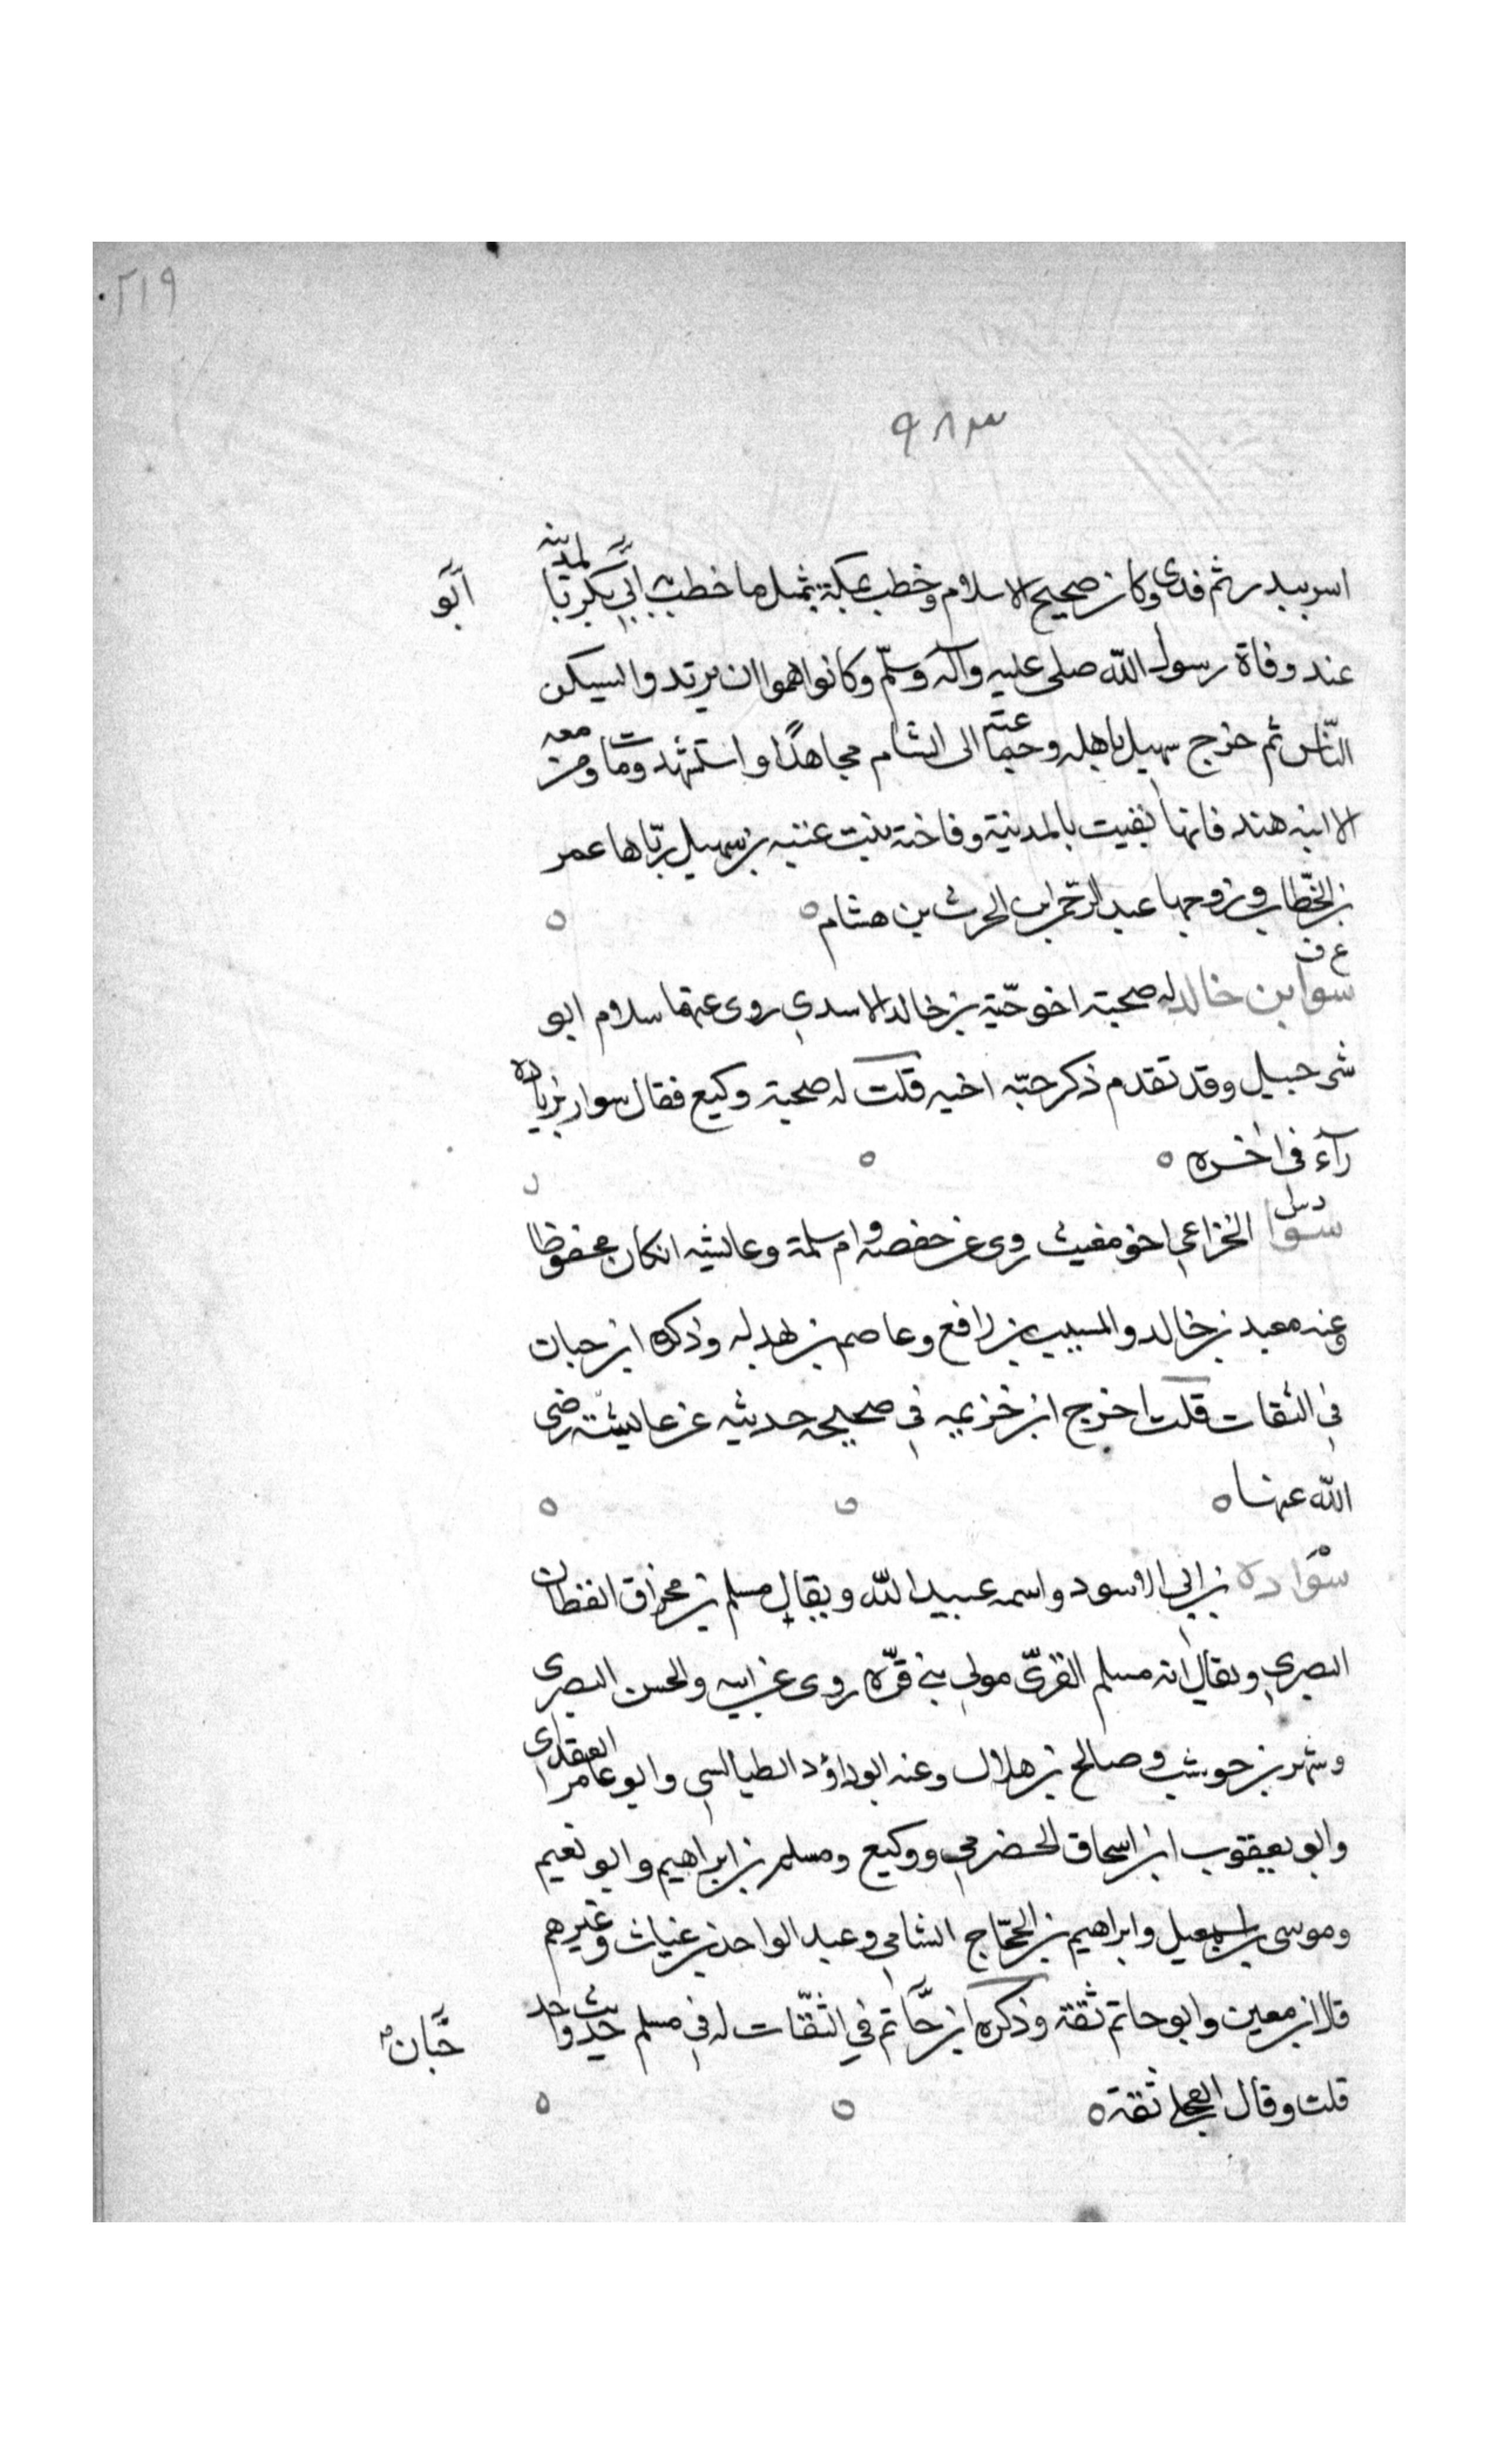 ٢١٩
٩٨٣
اسر ببدر ثم فدى وكان صحيح الاسلام وخطب بمكة بمثل ما خطب به ابي بكر بالمدينه
ابو
عند وفاة رسول الله صلى عليه وآله وسلم وكانوا هموا ان يرتدوا ليسكن
الناس ثم خرج سهيل باهله وجماعته الى الشام مجاهدا واستشهد ومات ومن معه
الا ابنه هند فانها بقيت بالمدينة وفاخته بنت عتبه بن سهيل ربّاها عمر
بن الخطاب وزوجها عبد الرحمن ابن الحرث بن هشام ه
ع ف
سوا بن خالد له صحبته اخو حبّة بن خالد الاسدي روى عنهما سلام ابو
شرحبيل وقد تقدم ذكر حبّه اخيه قلت له صحبة وكيع فقال سوار بزياده
رآء في اخره ه
د س
سوا الخزاعي اخو مغيث روى عن حفصه وام سلمة وعايشه ان كان محفوظا
وعنه معبد بن خالد والمسيب بن رافع وعاصم بن بهدله وذكره ابن حبان
في الثقات قلت اخرج ابن خزيمه في صحيحه حديثه عن عايشة رضى
الله عنها ه
م
سواده بن ابي الاسود واسمه عبيد الله ويقال مسلم بن مخراق القطان
البصري ويقال انه مسلم القرّيّ مولى بني قرّه روى عن ابيه والحسن البصرى
وشهر بن حوشب وصالح بن هلال وعنه ابو داؤد الطيالسي وابو عامر العقدى
وابو يعقوب ابن اسحاق الحضرمي ووكيع ومسلم بن ابراهيم وابو نعيم
وموسى بن اسمعيل وابراهيم بن الحجّاج الشامي وعبد الواحد بن غياث وغيرهم
قال ابن معين وابو حاتم ثقة وذكره ابن حَّاتم في الثقّات له في مسلم حديث واحد
حَّبان
قلت وقال العجلي ثقة ه